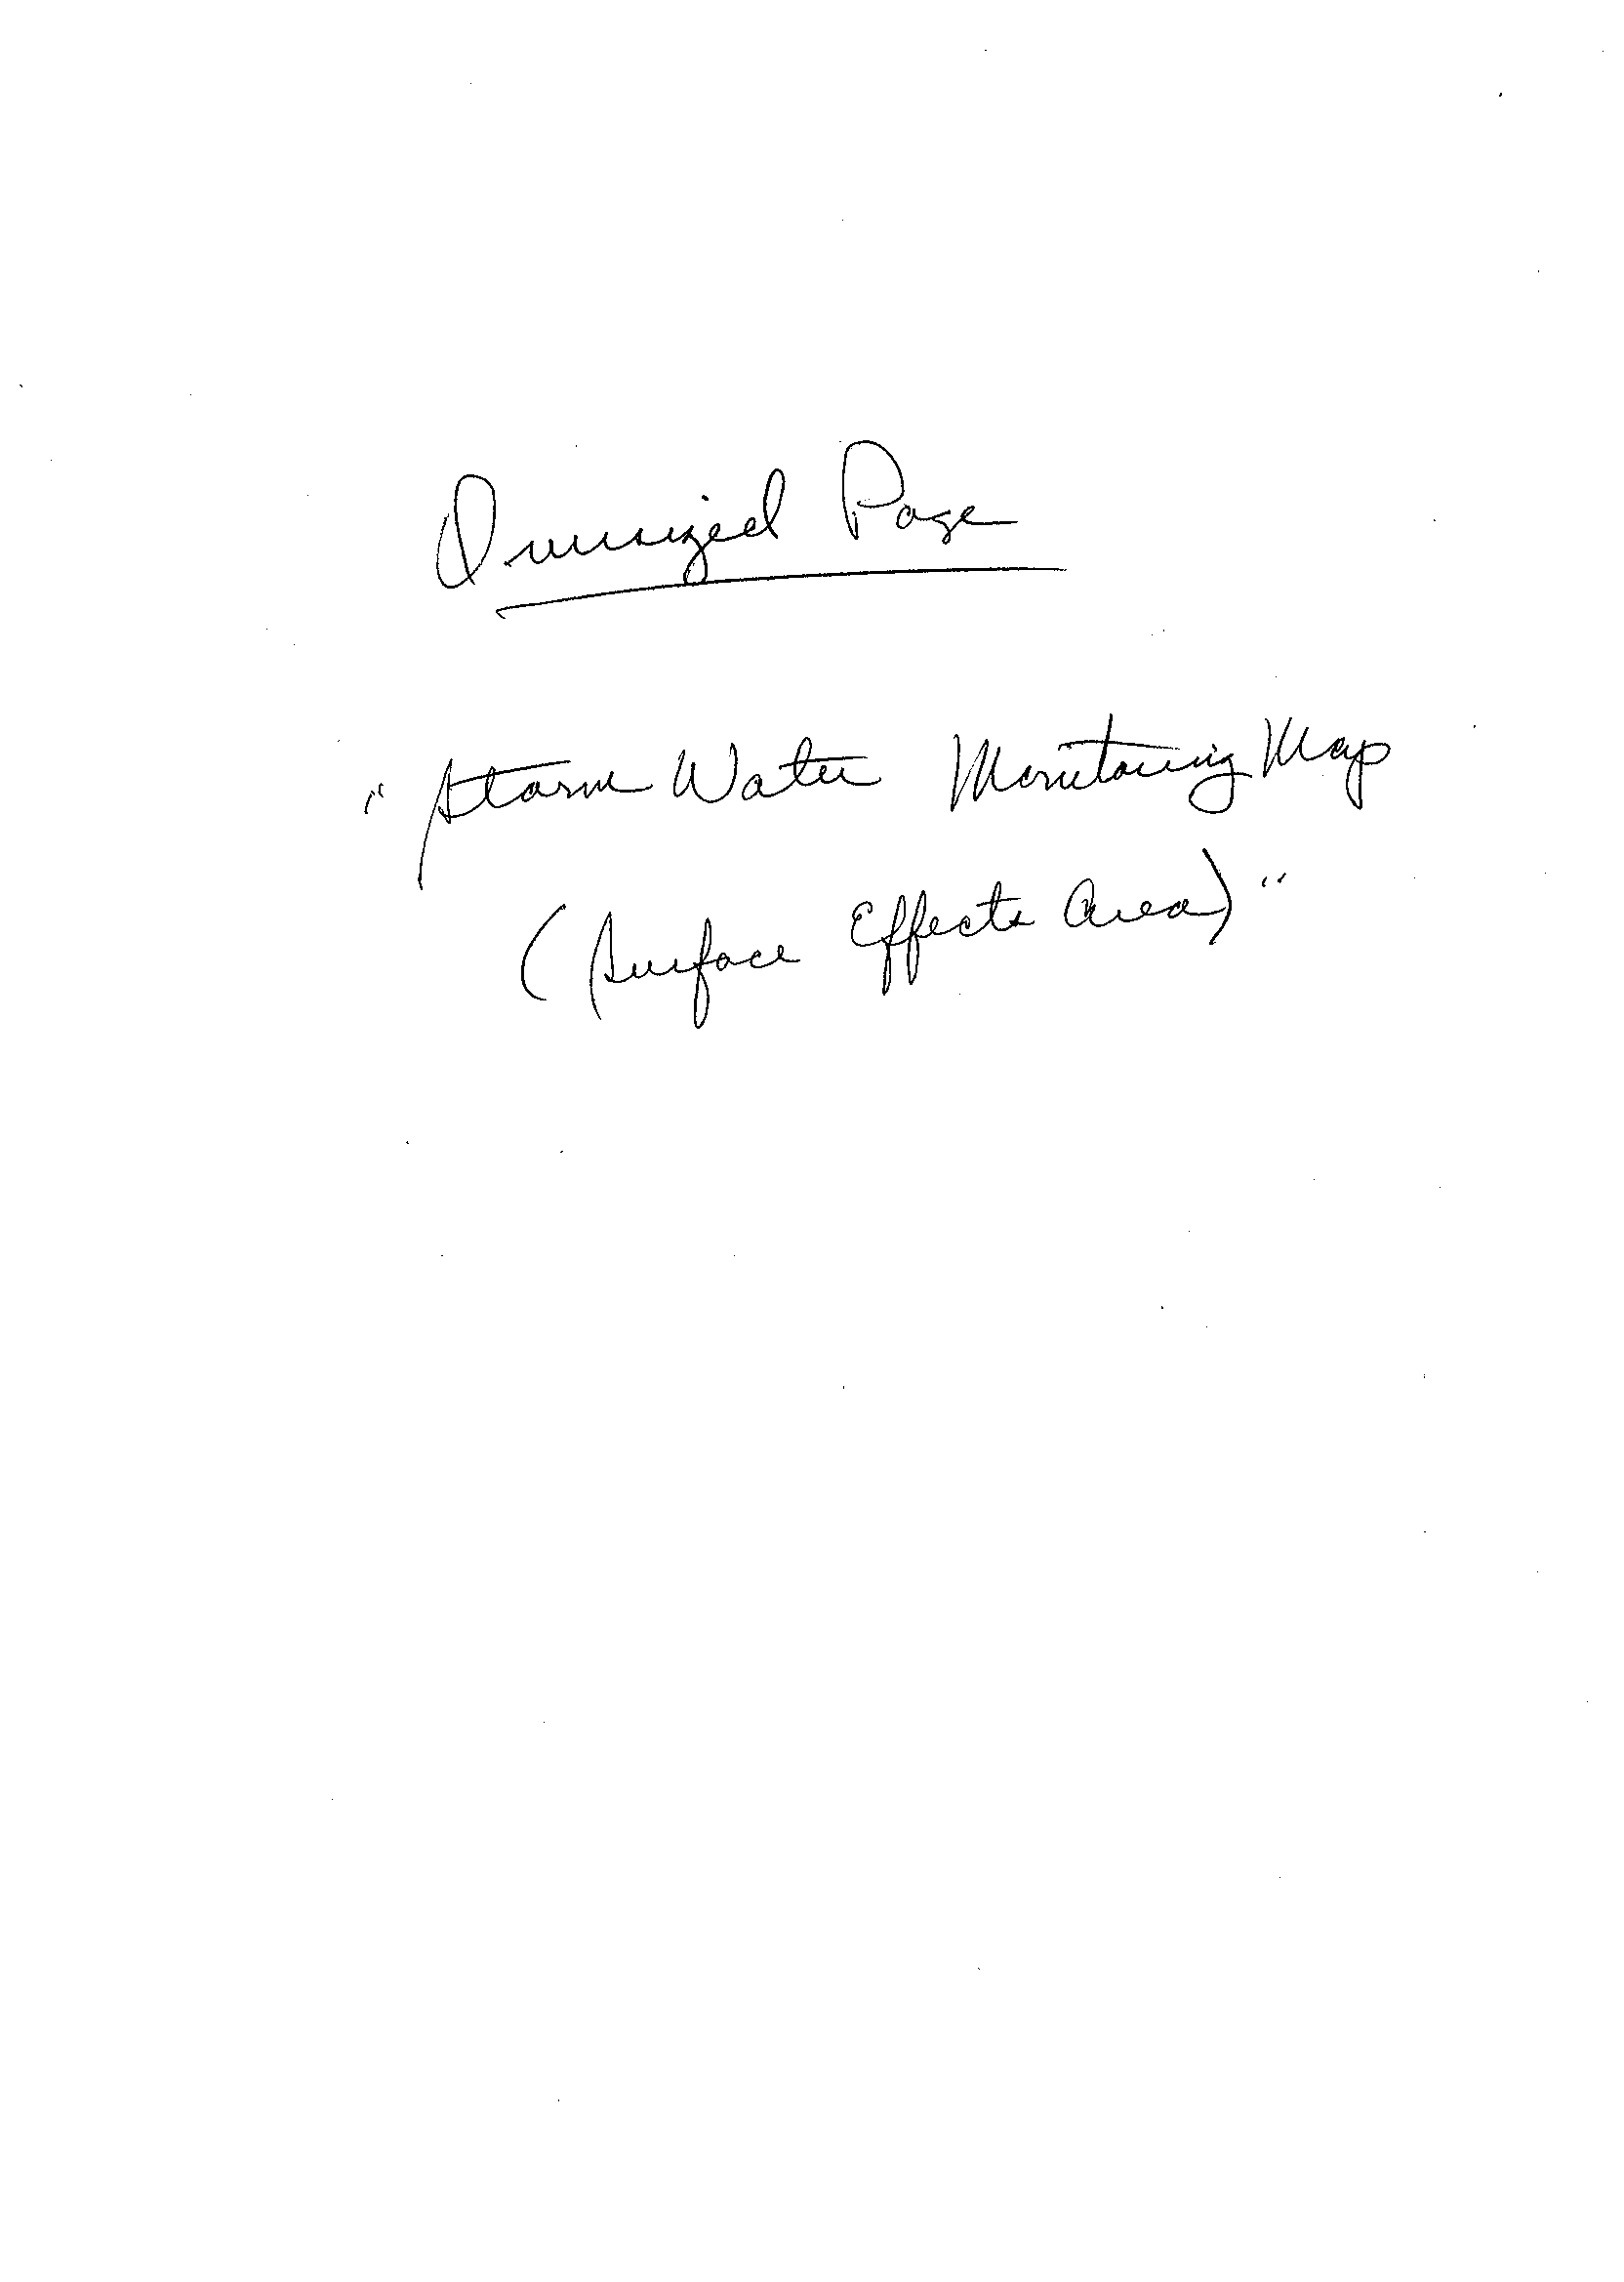 Oversized Page
"Storm Water Monitoring Map
(Surface Effects Area)"